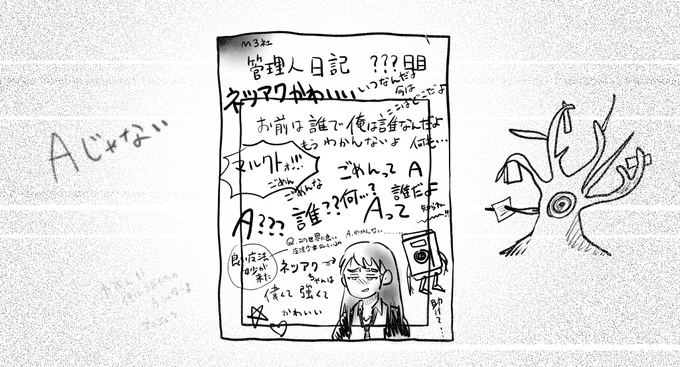 M3社
管理人日記 ???日目
ネツアクかわいい
いつなんだよ
今は
ここはどこだよ
お前は誰で俺は誰なんだよ
もうわかんないよ 何も…
マルクトォ!!!
ごめん
ごめんな
ごめんってA
A???
誰??何…?
Aって
誰だよ
知らねー
Aじゃない
Q.この世界に良い
魔法少女はいるの
A.わかんない
良い魔法
少女が
来た
ネツアク
ちゃんは
偉くて強くて
かわいい
助けて…